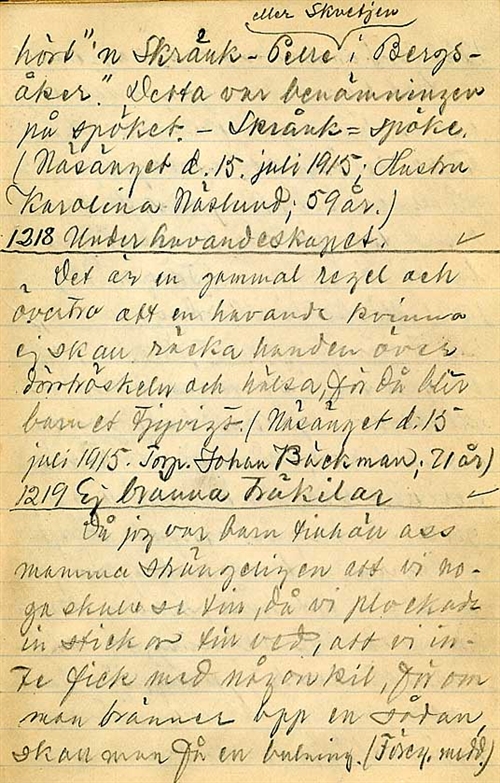 eller Skvetjen
hört "'n Skrånk-Pelle i Bergs-
åker." Detta var benämningen
på spöket. - Skrånk = spöke.
(Näsänget d. 15. juli 1915; Hustru
Karolina Näslund; 59 år.)
1218 Under havandeskapet. ✓
Det är en gammal regel och
övertro att en havande kvinna
ej skall räcka handen över
dörrtröskeln och hälsa, för då blir
barnet (Näsänget d. 15
juli 1915. Torp. Johan Bäckman; 71 år)
1219 Ej bränna träkilar ✓
Då jag var barn tillhöll oss
mamma strängeligen att vi no-
ga skulle se till, då vi plockade
in stickor till ved, att vi in-
te fick med någon kil, för om
man bränner opp en sådan,
skall man få en bulning. (Föreg. medd.)